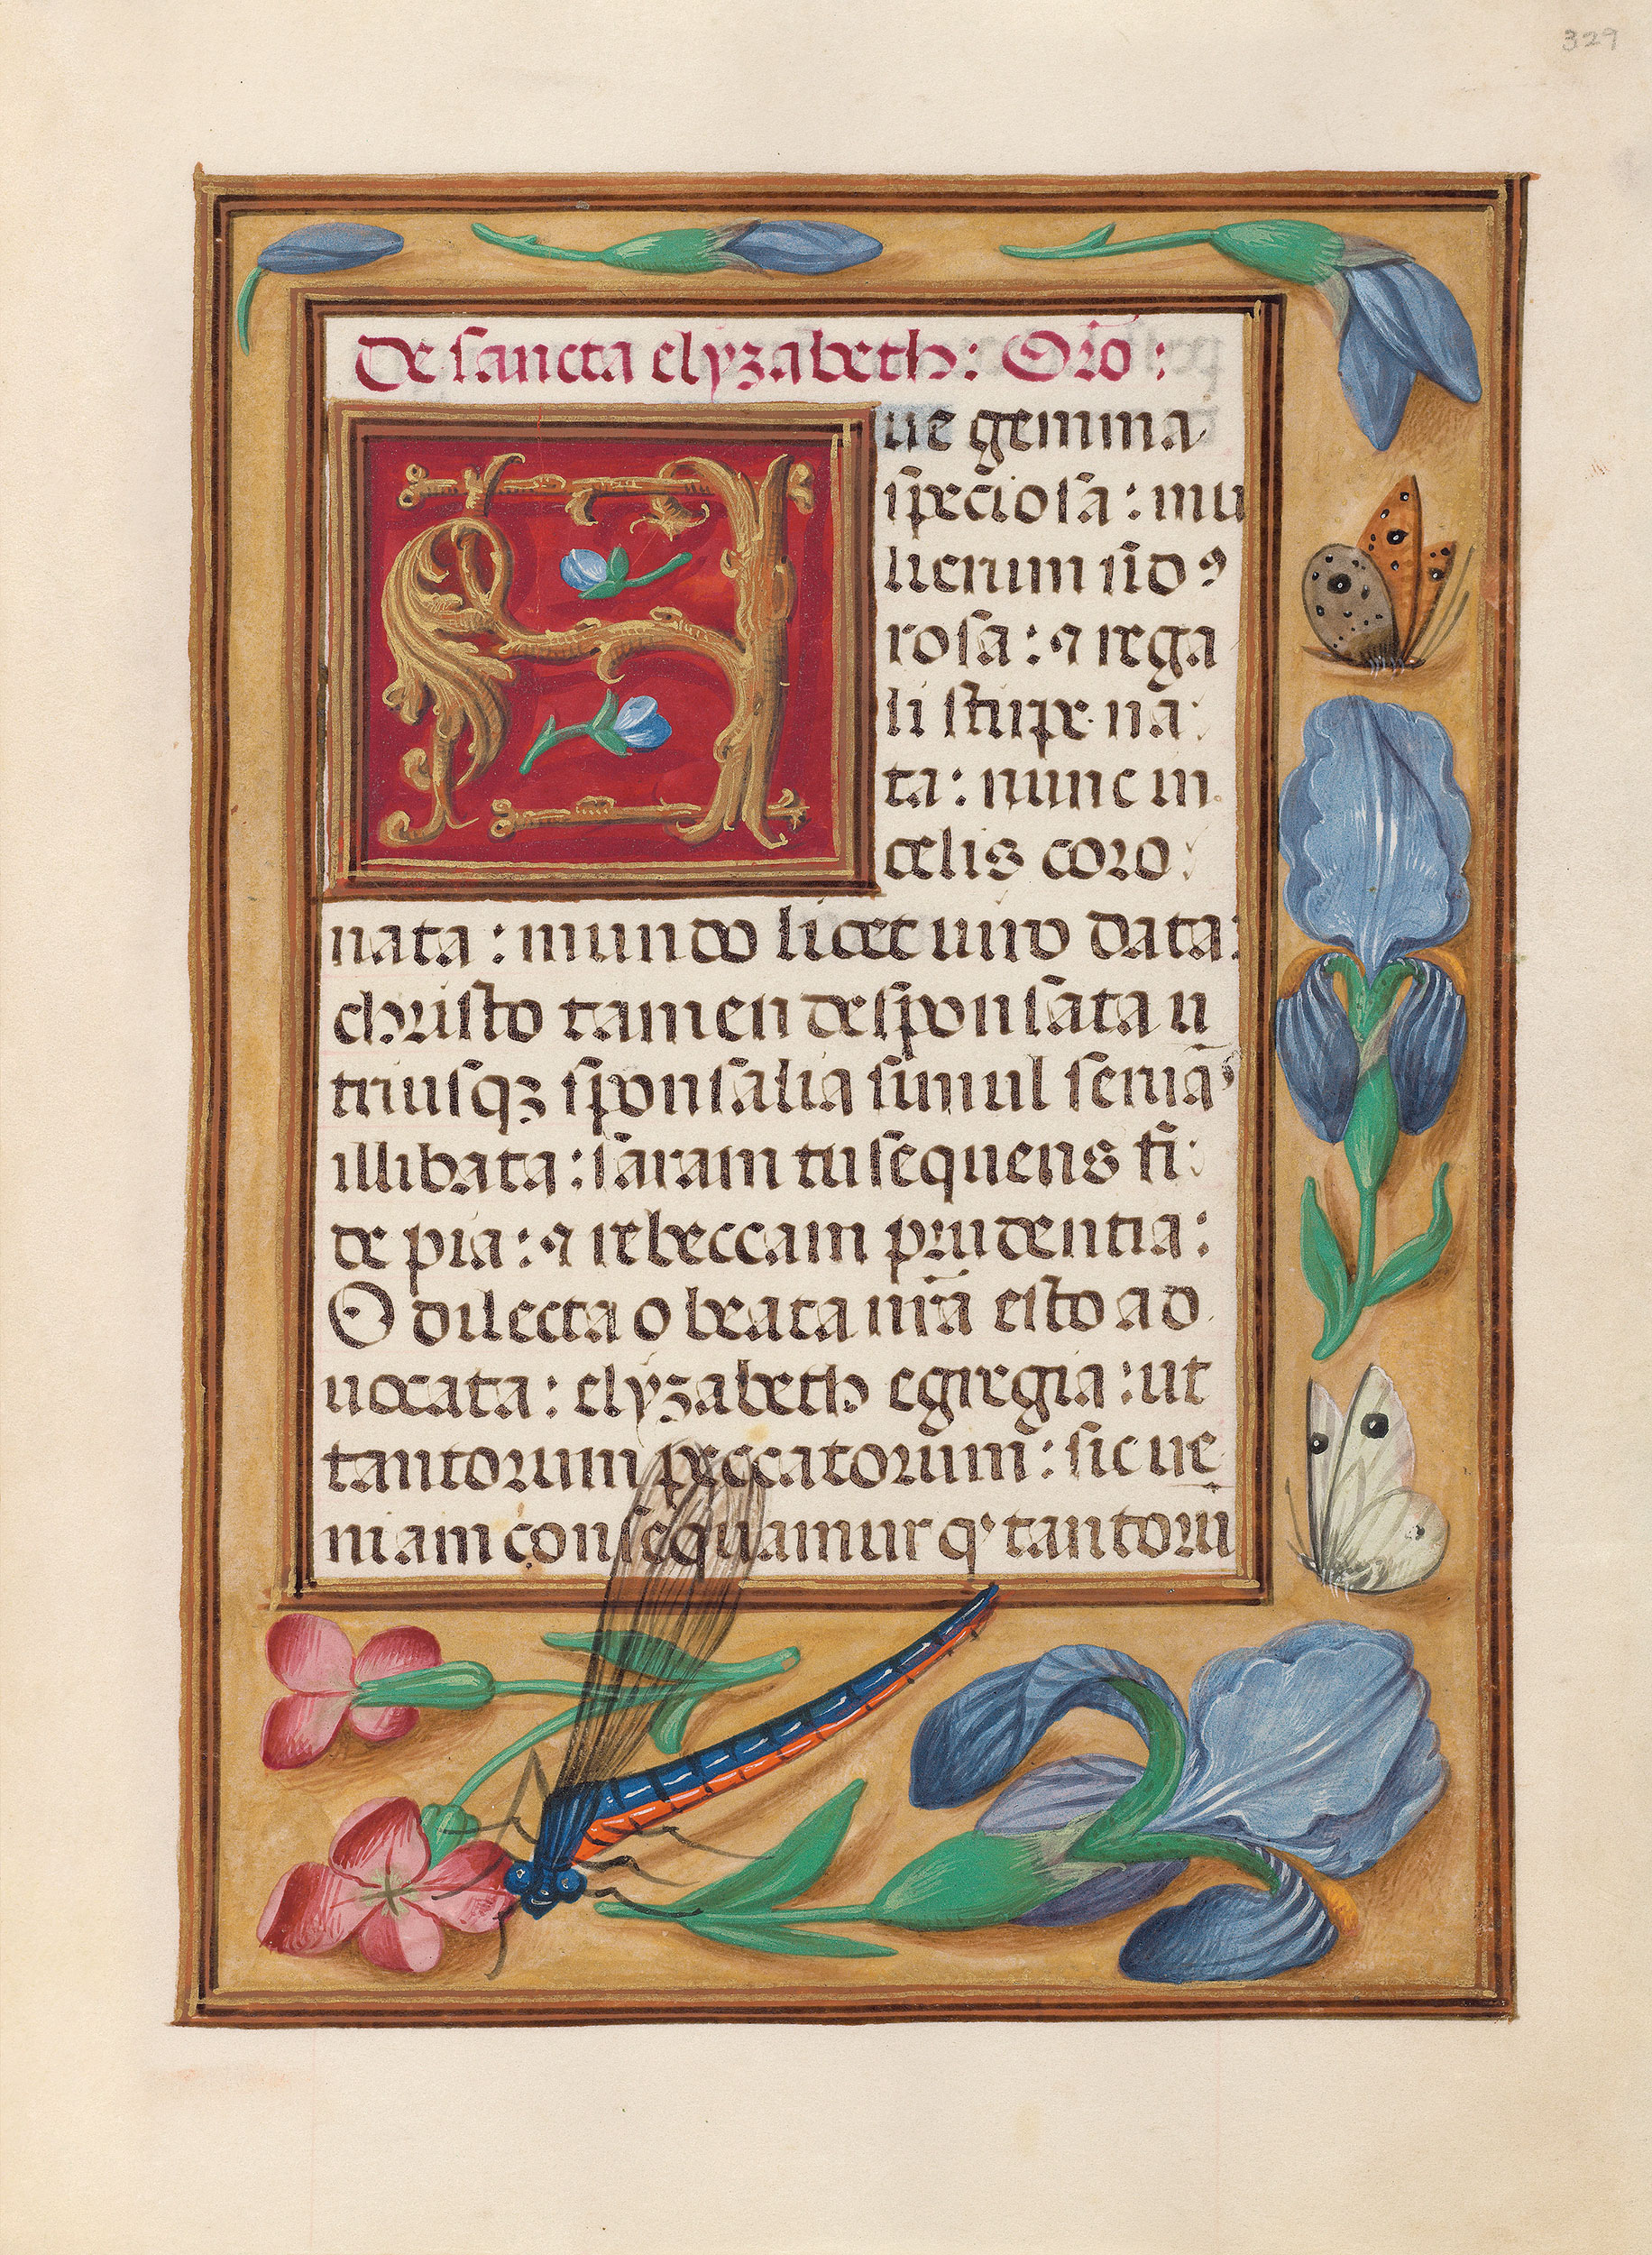 329
De sancta elyzabeth: Oro͞:
Aue gemma
spe͞ciosa: mu
lierum sid⁹
rosa: ⁊ rega
li stirpe na͞
ta: nunc in
celis coro
nata: mundo licet viro data:
christo tamen desponsata u
triusqꝫ sponsalia simul serua͞s
illibata: saram tu sequens fi
de pia: ⁊ rebeccam prudentia:
O dilecta o beata nr͞a esto ad
uocata: elyzabeth egregia: ut
tantorum peccatorum: sic ue
niam consequamur qͥ tantoru